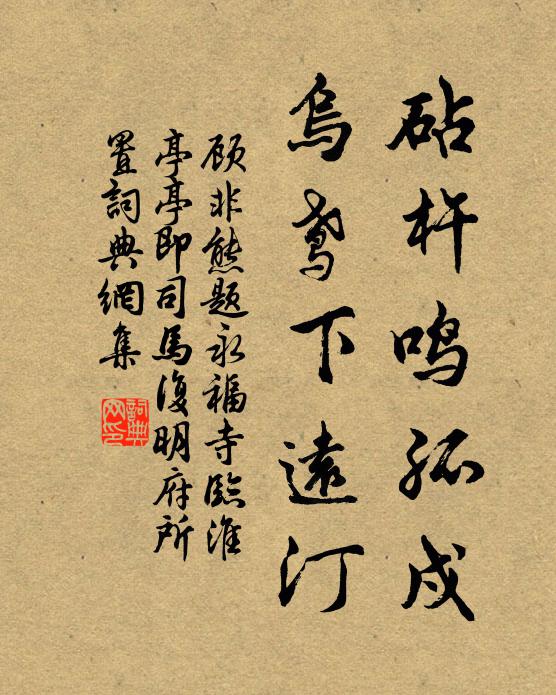 砧杵鸣孤戍
乌鸢下远汀
顾非熊题永福寺临淮
亭亭即司马复明府所
置词典网集
词典
网印